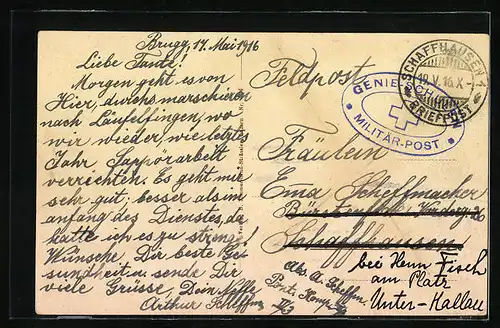 Brugg, 17. Mai 1916
Liebe Tante!
Morgen geht es von
Hier, durchs marschieren
nach Läufelfingen, wo
wir wieder wie letztes
Jahr Sappörarbeit
verrichten. Es geht mir
sehr gut; besser als im
anfang des Dienstes, da
hatte ich es zu streng!
Wünsche Dir beste Ge-
sundheit u. sende Dir
viele Grüsse, Dein Neffe
Arthur
Feldpost
GENIE
MILITÄR-POST
SCHAFFHAUSEN 1
18.V.16.X
BRIEFPOST
Fräulein
Ema Scheffmacher
Schaffhausen
bei Herrn Fisch
am Platz
Unter-Hallau
Abs. A. Scheffm.
Pont. Komp.